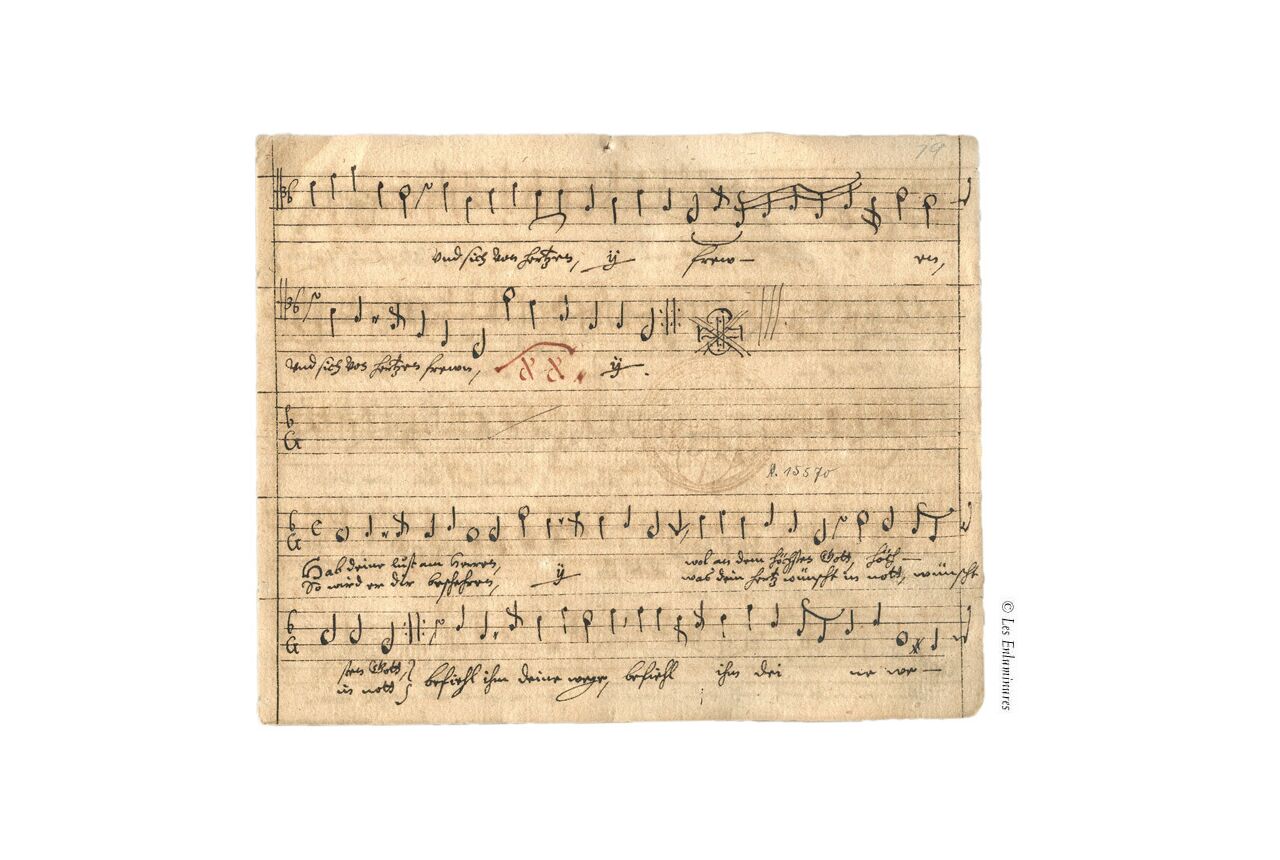 74
Vnd sich von hertzen, ij frew– en,
Vnd sich von hertzen frewen, ij.
A. 15570
Hab deine lust am Herren, wol an dem höchsten Gott, höch–
So wird er dir bescheren, ij was dein hertz wünscht in nott, wünscht
sten Gott,
in nott
befiehl ihm deine wege, befiehl ihm dei ne we–
© Les Enluminures